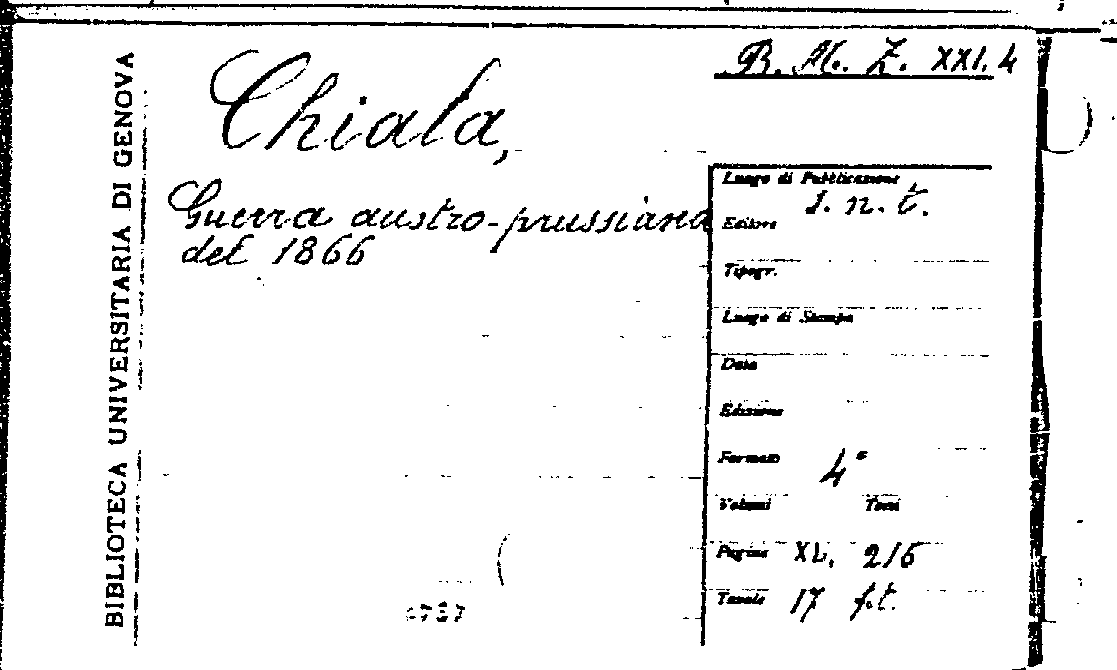 B. M. Z. XXI. 4
BIBLIOTECA UNIVERSITARIA DI GENOVA
Chiala,
Guerra austro-prussiana
del 1866
Luogo di Pubblicazione
s. n. t.
Editore
Tipogr.
Luogo di Stampa
Data
Edizione
Formato 4°
Volumi Tomi
Pagine XL, 216
Tavole 17 f.t.